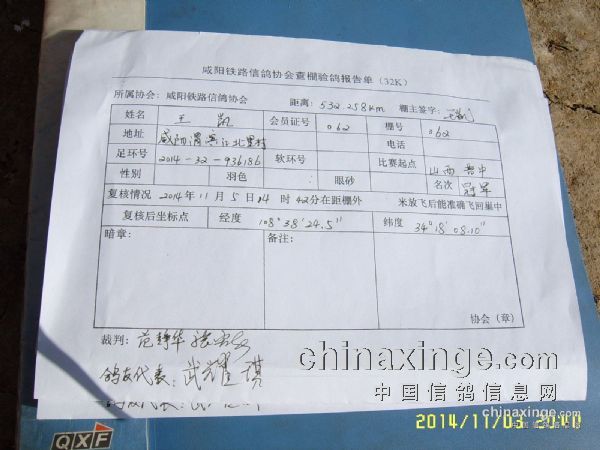 咸阳铁路信鸽协会查棚验鸽报告单（32K）
所属协会：咸阳铁路信鸽协会 距离：532.258km 棚主签字：
姓名 王凯 会员证号 062 棚号 062
地址 咸阳渭滨北里村 电话
足环号 2014-32-936186 软环号 比赛起点 山西 晋中
性别 羽色 眼砂 名次 冠军
复核情况 2014年11月5日14时42分在距棚外 米放飞后能准确飞回巢中
复核后坐标点 经度 108°38′24.5″ 纬度 34°18′08.10″
暗章： 备注：
协会（章）
裁判：范静华
鸽友代表：武耀琪
chinaxinge.com
中国信鸽信息网
QXF
2014/11/05
chinaxinge.com